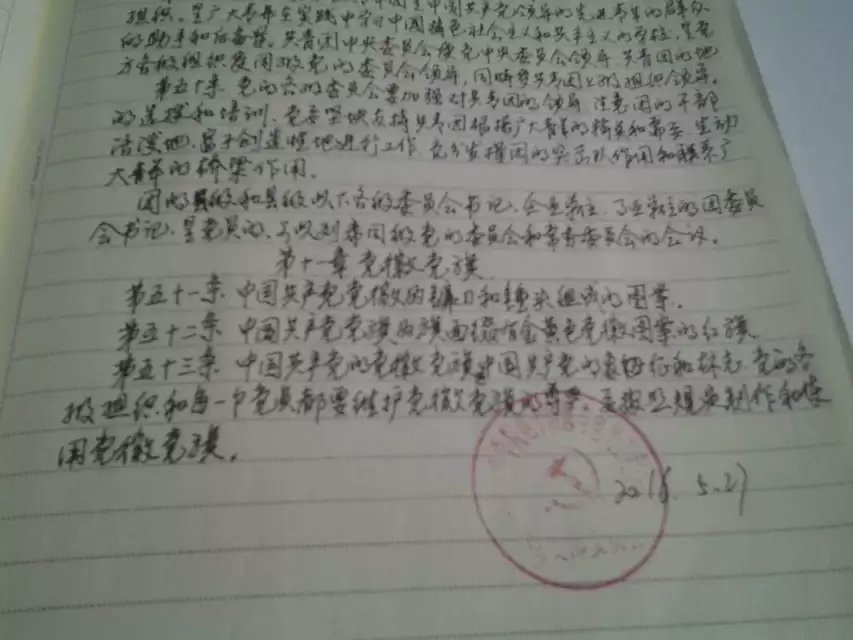 中国共产党领导的先进青年的群众
组织，是广大青年在实践中学习中国特色社会主义和共产主义的学校，是党
的助手和后备军。共青团中央委员会受党中央委员会领导。共青团的地
方各级组织受同级党的委员会领导，同时受共青团上级组织领导。
第五十条 党的各级委员会要加强对共青团的领导，注意团的干部
的选拔和培训。党要坚决支持共青团根据广大青年的特点和需要，生动
活泼地、富于创造性地进行工作，充分发挥团的突击队作用和联系广
大青年的桥梁作用。
团的县级和县级以下各级委员会书记，企业单位、事业单位的团委员
会书记，是党员的，可以列席同级党的委员会和常务委员会的会议。
第十一章 党徽党旗
第五十一条 中国共产党党徽为镰刀和锤头组成的图案。
第五十二条 中国共产党党旗为旗面缀有金黄色党徽图案的红旗
第五十三条 中国共产党的党徽党旗是中国共产党的象征和标志。党的各
级组织和每一个党员都要维护党徽党旗的尊严。要按照规定制作和使
用党徽党旗。
2016.5.27